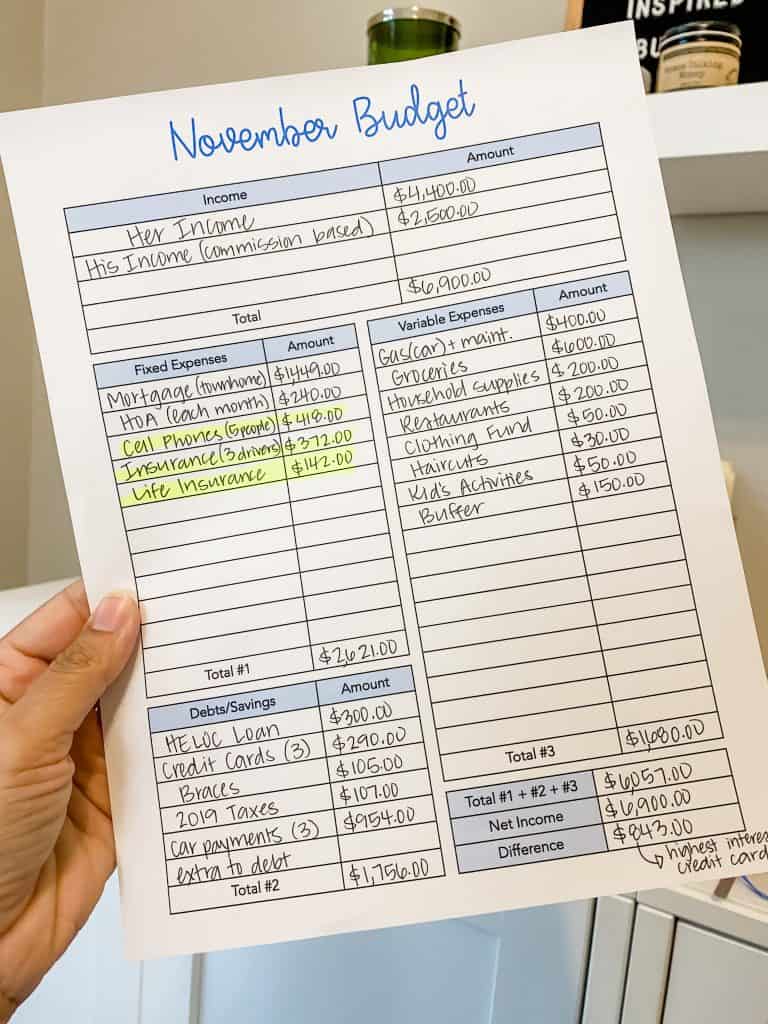 INSPIRED
BU
November Budget
Income Amount
Her Income $4,400.00
His Income (commission based) $2,500.00
Total $6,900.00
Fixed Expenses Amount
Mortgage (townhome) $1,449.00
HOA (each month) $240.00
Cell Phones (5 people) $418.00
Insurance (3 drivers) $372.00
Life Insurance $142.00
Total #1 $2,621.00
Variable Expenses Amount
Gas (car) + maint. $400.00
Groceries $600.00
Household supplies $200.00
Restaurants $200.00
Clothing Fund $50.00
Haircuts $30.00
Kid's Activities $50.00
Buffer $150.00
Total #3 $1,680.00
Debts/Savings Amount
HELOC Loan $300.00
Credit Cards (3) $290.00
Braces $105.00
2019 Taxes $107.00
car payments (3) $954.00
extra to debt
Total #2 $1,756.00
Total #1 + #2 + #3 $6,057.00
Net Income $6,900.00
Difference $843.00
↳ highest intere
credit card